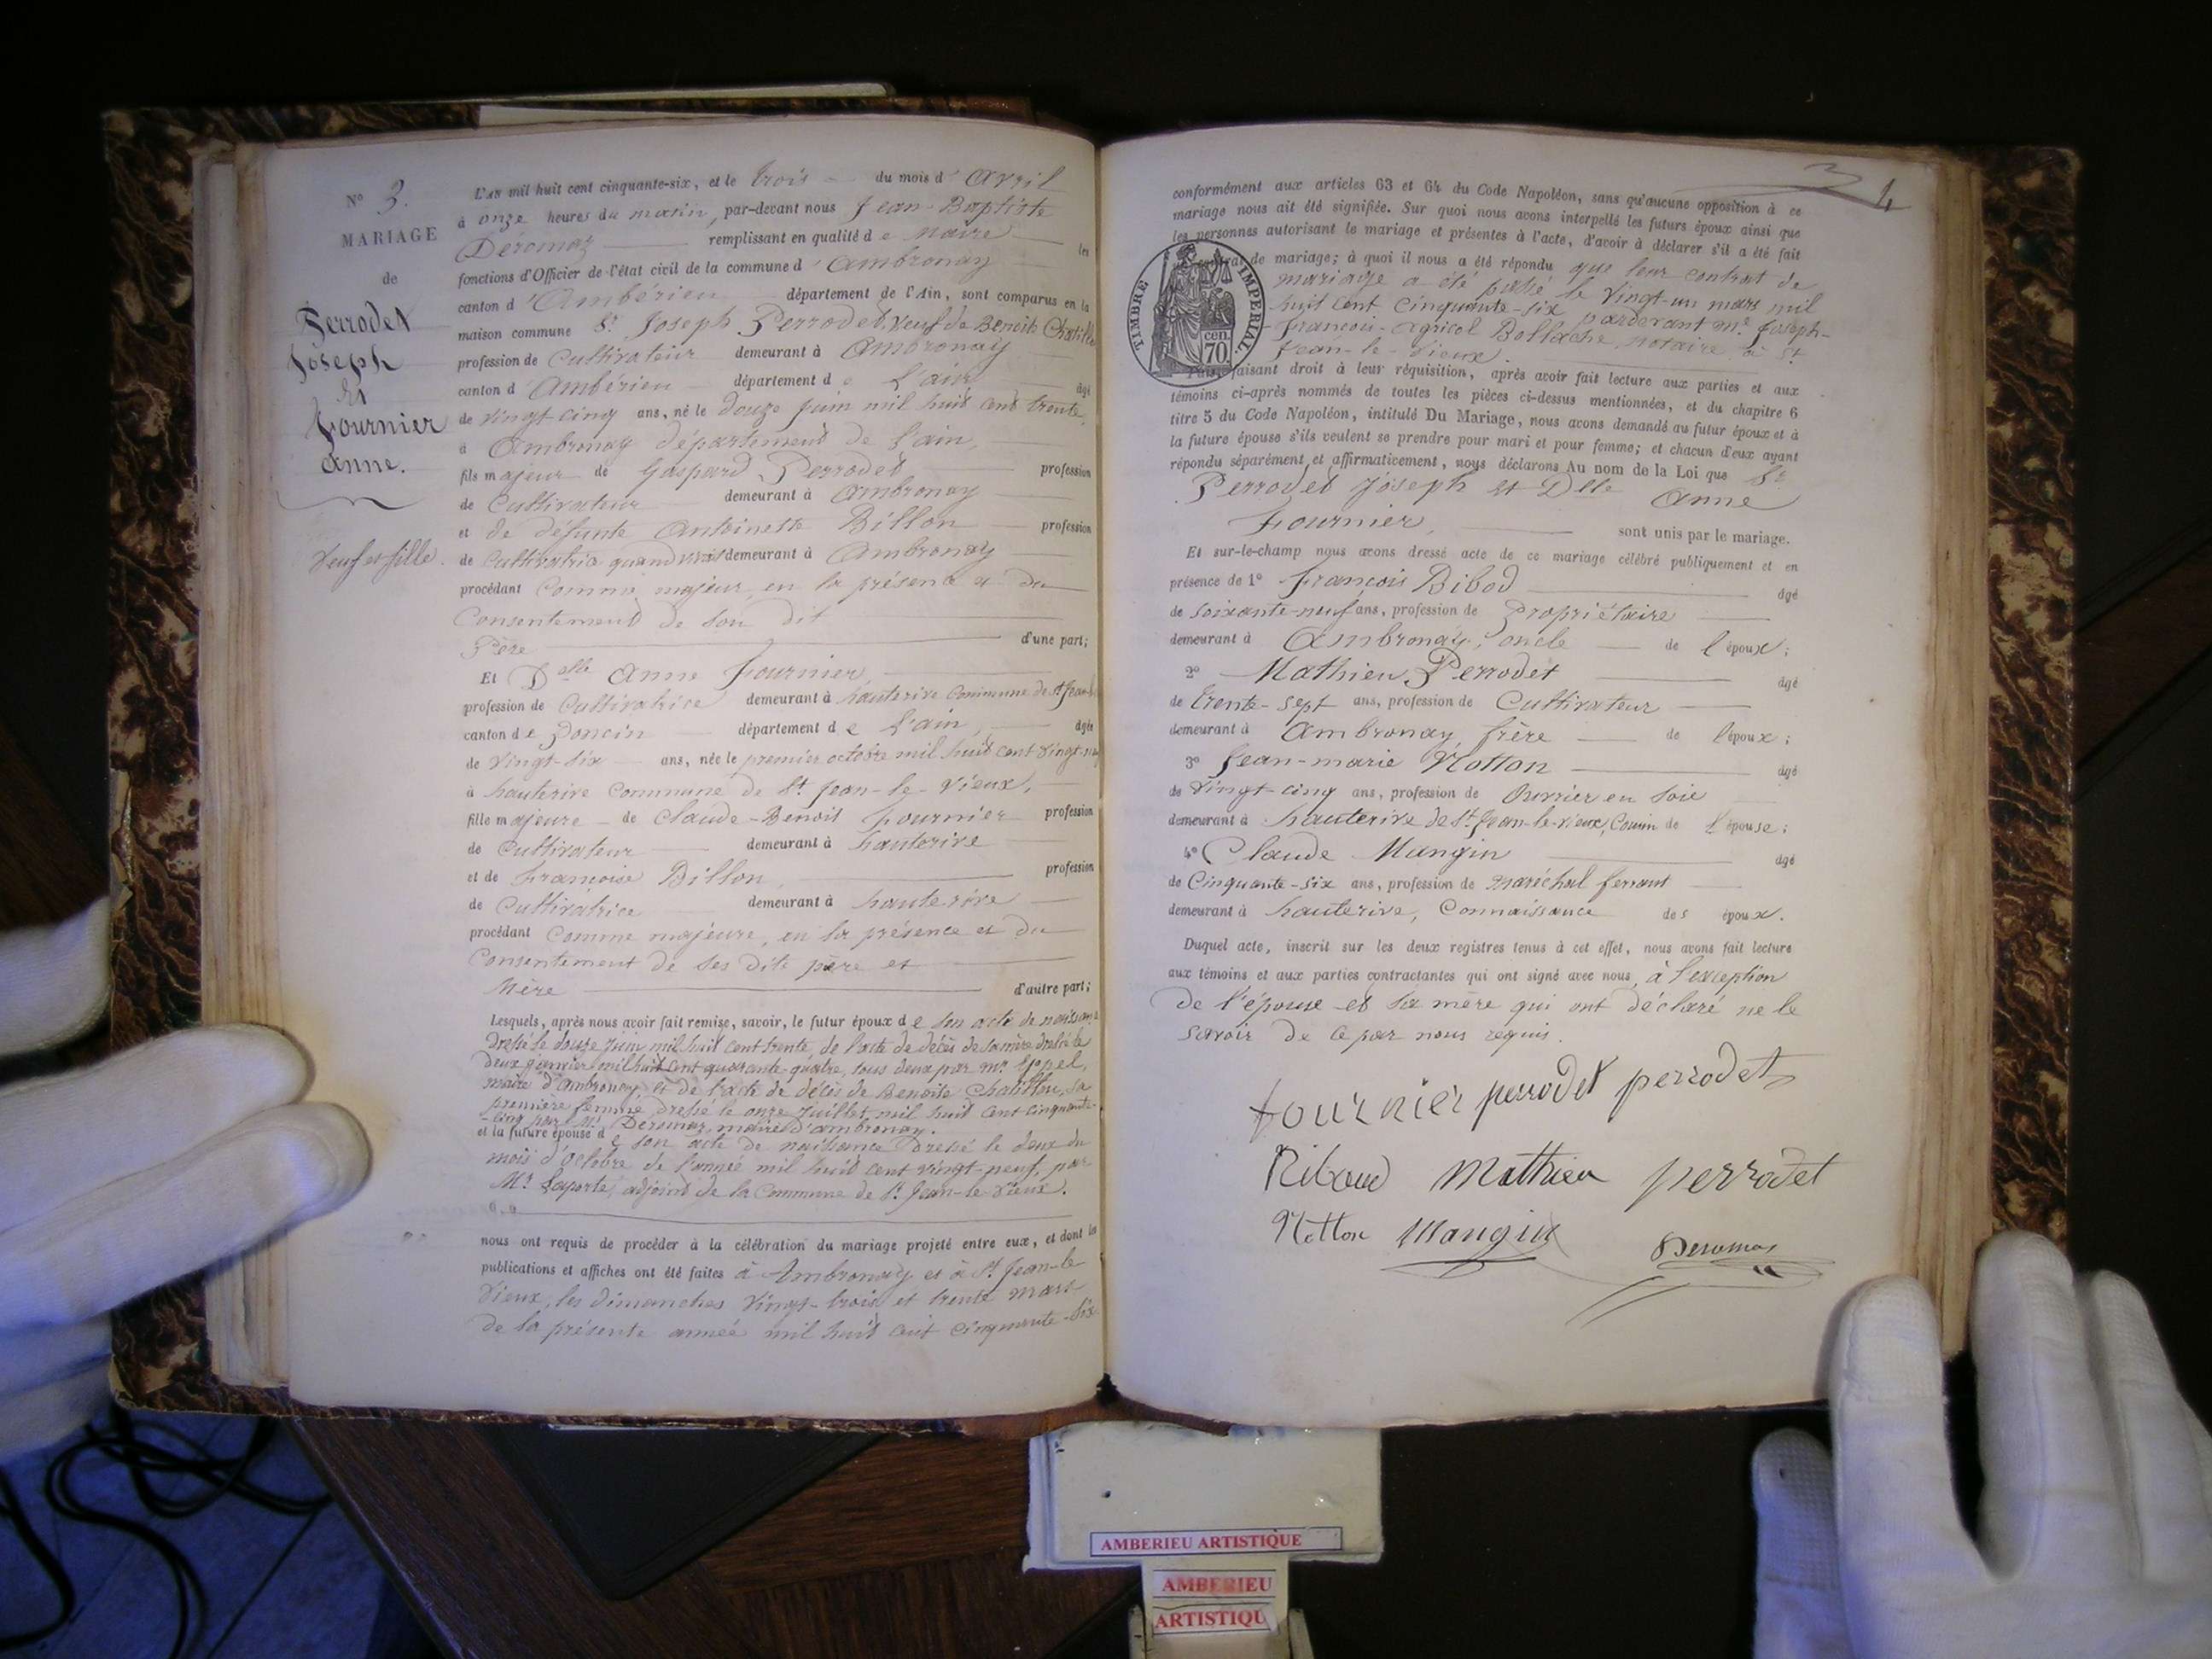 N° 3.
MARIAGE
de
Perrodet
Joseph
Et
Fournier
Anne.
Veuf et fille.
L'an mil huit cent cinquante-six, et le trois du mois d'Avril
à onze heures du matin, par-devant nous Jean-Baptiste
Deromas remplissant en qualité de Maire les
fonctions d'Officier de l'état civil de la commune d'Ambronay
canton d'Ambérieu département de l'Ain, sont comparus en la
maison commune Sr. Joseph Perrodet, veuf de Benoite
profession de Cultivateur demeurant à Ambronay
canton d'Ambérieu département de L'ain âgé
de vingt cinq ans, né le douze juin mil huit cent trente,
à Ambronay département de l'ain,
fils majeur de Gaspard Perrodet profession
de Cultivateur demeurant à Ambronay
et de défunte Antoinette Billon profession
de Cultivatrice quand vivait demeurant à Ambronay
procédant Comme majeur, en la présence et du
Consentement de son dit
Père d'une part;
Et Dlle Anne Fournier,
profession de Cultivatrice demeurant à hauterive Commune de St Jean-le
canton de Poncin département de L'ain, âgée
de vingt-six ans, née le premier octobre mil huit cent vingt-neuf
à hauterive Commune de St. Jean-le-Vieux,
fille majeure de Claude-Benoit fournier profession
de Cultivateur demeurant à hauterive
et de Françoise Billon, profession
de Cultivatrice demeurant à hauterive
procédant Comme majeure, en la présence et du
Consentement de ses dits père et
Mère d'autre part;
Lesquels, après nous avoir fait remise, savoir, le futur époux de son acte de naissance
dressé le douze juin mil huit cent trente, de l'acte de décès de sa mère dressé le
deux janvier mil huit cent quarante-quatre, tous deux par Mr.
maire d'Ambronay et de l'acte de décès de Benoite Chatillon, sa
première femme, dressé le onze juillet mil huit cent cinquante-
-cinq par Mr. Deromas, maire d'ambronay.
et la future épouse de son acte de naissance dressé le deux du
mois d'octobre de l'année mil huit cent vingt-neuf, par
Mr. Laporte, adjoint de la Commune de St. Jean-le-Vieux.
nous ont requis de procéder à la célébration du mariage projeté entre eux, et dont les
publications et affiches ont été faites à Ambronay et à St. Jean-le
Vieux, les dimanches vingt-trois et trente mars
de la présente année mil huit cent cinquante-six
conformément aux articles 63 et 64 du Code Napoléon, sans qu'aucune opposition à ce
mariage nous ait été signifiée. Sur quoi nous avons interpellé les futurs époux ainsi que
les personnes autorisant le mariage et présentes à l'acte, d'avoir à déclarer s'il a été fait
contrat de mariage; à quoi il nous a été répondu que leur contrat de
mariage a été passé le vingt-un mars mil
huit cent cinquante-six pardevant Me. Joseph-
-françois-agricol Bollache, notaire à St
Jean-le-Vieux.
TIMBRE IMPERIAL.
cen.
70.
Puis, faisant droit à leur réquisition, après avoir fait lecture aux parties et aux
témoins ci-après nommés de toutes les pièces ci-dessus mentionnées, et du chapitre 6
titre 5 du Code Napoléon, intitulé Du Mariage, nous avons demandé au futur époux et à
la future épouse s'ils veulent se prendre pour mari et pour femme; et chacun d'eux ayant
répondu séparément et affirmativement, nous déclarons Au nom de la Loi que Sr.
Perrodet Joseph et Dlle Anne
Fournier, sont unis par le mariage.
Et sur-le-champ nous avons dressé acte de ce mariage célébré publiquement et en
présence de 1° François Ribod âgé
de soixante-neuf ans, profession de Propriétaire
demeurant à Ambronay, oncle de l'époux;
2° Mathieu Perrodet âgé
de trente-sept ans, profession de Cultivateur
demeurant à Ambronay, frère de l'époux;
3° Jean-marie Notton âgé
de vingt-cinq ans, profession de Ouvrier en soie
demeurant à hauterive de St Jean-le-vieux, Cousin de l'épouse;
4° Claude Mangin âgé
de Cinquante-six ans, profession de Maréchal ferrant
demeurant à hauterive, Connaissance des époux.
Duquel acte, inscrit sur les deux registres tenus à cet effet, nous avons fait lecture
aux témoins et aux parties contractantes qui ont signé avec nous, à l'exception
de l'épouse et sa mère qui ont déclaré ne le
savoir de ce par nous requis.
fournier perrodet perrodet
Ribaud Mathieu perrodet
Notton Mangin Deromas
AMBERIEU ARTISTIQUE
AMBERIEU
ARTISTIQU